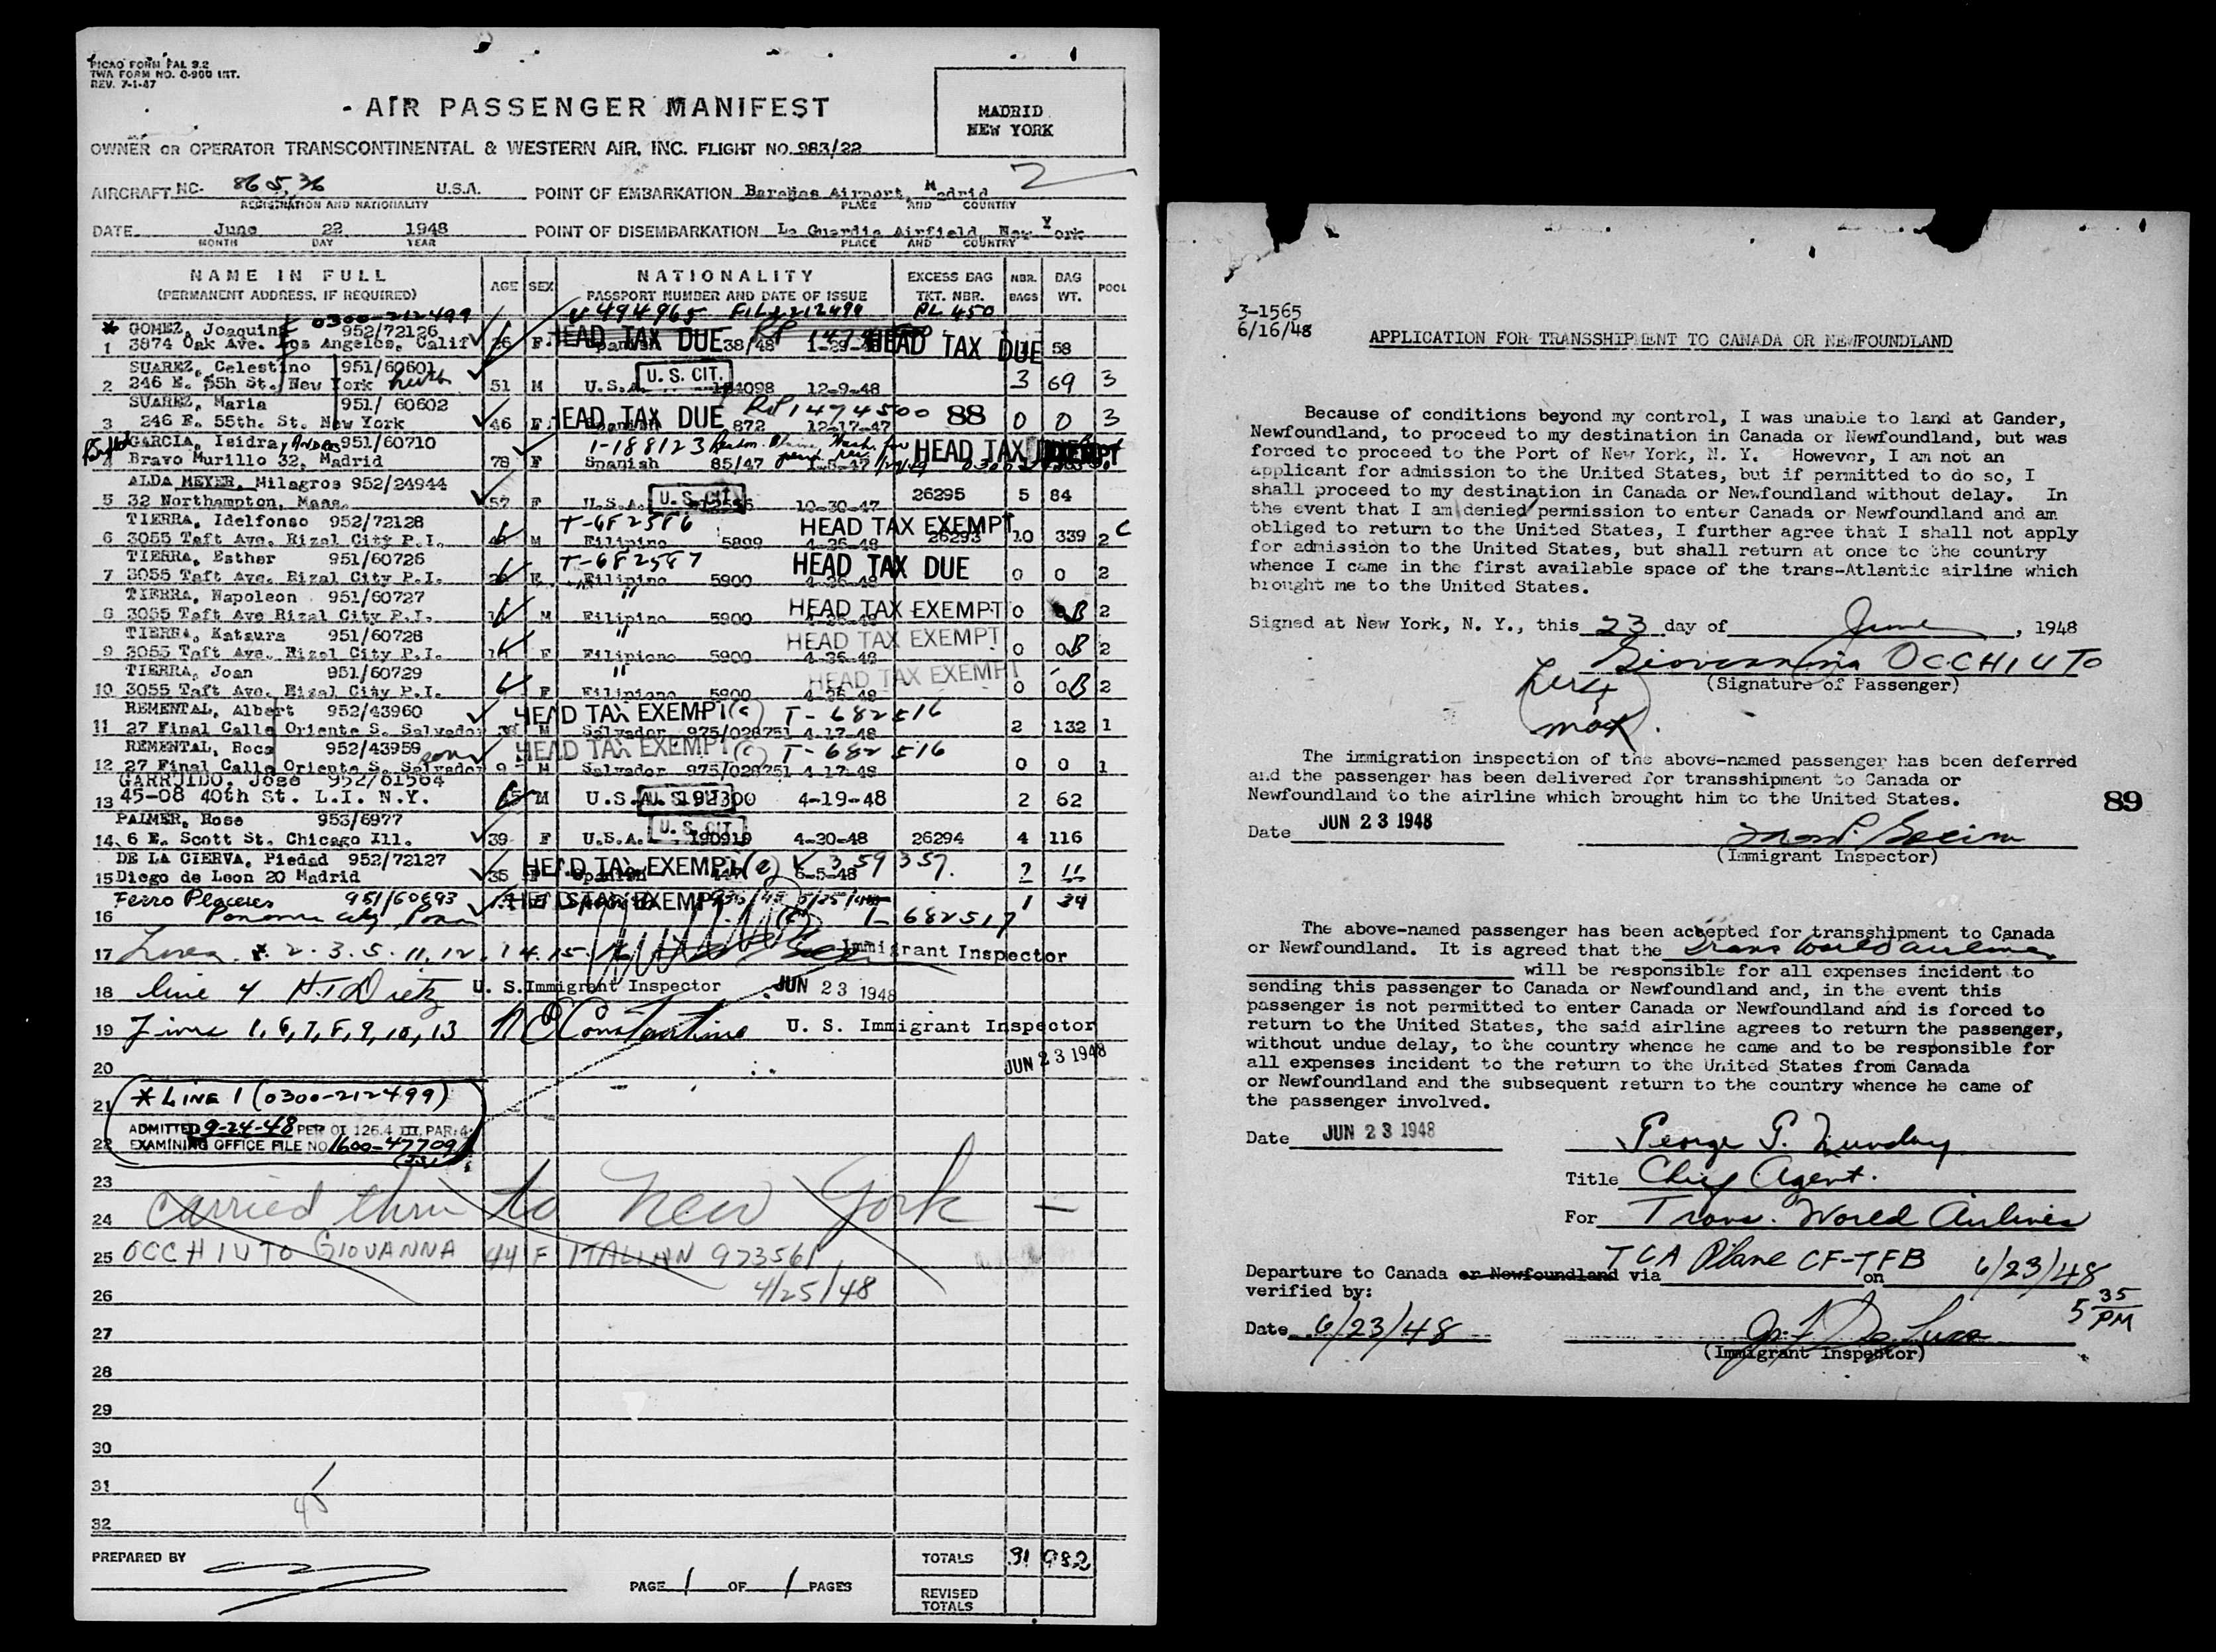 PICAO FORM FAL 3.2
TWA FORM NO. O-900 INT.
REV. 7-1-47
AIR PASSENGER MANIFEST
MADRID
NEW YORK
OWNER OR OPERATOR TRANSCONTINENTAL & WESTERN AIR, INC. FLIGHT NO. 983/22
AIRCRAFT NC- 86536 U.S.A. POINT OF EMBARKATION Barajas Airport, Madrid 2
REGISTRATION AND NATIONALITY PLACE AND COUNTRY
DATE June 22 1948 POINT OF DISEMBARKATION La Guardia Airfield, New York
MONTH DAY YEAR PLACE AND COUNTRY
NAME IN FULL AGE SEX NATIONALITY EXCESS BAG NBR. BAG POOL
(PERMANENT ADDRESS, IF REQUIRED) PASSPORT NUMBER AND DATE OF ISSUE TKT. NBR. BAGS WT.
0300-212499 V 494965 FILE 212499 PL 450
* GOMEZ, Joaquina 952/72126 HEAD TAX DUE HEAD TAX DUE
1 3874 Oak Ave. Los Angeles, Calif 26 F Spanish 38/48 58
SUAREZ, Celestino 951/60601 U. S. CIT.
2 246 E. 55h St. New York 51 M U.S.A. 12-9-48 3 69 3
SUAREZ, Maria 951/ 60602 HEAD TAX DUE 1474500 88
3 246 E. 55th. St. New York 46 F Spanish 872 12-17-47 0 0 3
GARCIA, Isidra 951/60710 1-188123 HEAD TAX
4 Bravo Murillo 32, Madrid 78 F Spanish 85/47
ALDA MEYER, Milagros 952/24944 U. S. CIT.
5 32 Northampton, Mass. 57 F U.S.A. 10-30-47 26295 5 84
TIERRA, Idelfonso 952/72128 T-682586 HEAD TAX EXEMPT
6 3055 Taft Ave. Rizal City P.I. M Filipino 5899 4-26-48 26293 10 339 2 C
TIERRA, Esther 951/60726 T-682587 HEAD TAX DUE
7 3055 Taft Ave. Rizal City P.I. 26 F Filipino 5900 4-26-48 0 0 2
TIERRA, Napoleon 951/60727 " HEAD TAX EXEMPT
8 3055 Taft Ave Rizal City P.I. M Filipino 5900 4-26-48 0 B 2
TIERRA, Kataura 951/60728 " HEAD TAX EXEMPT
9 3055 Taft Ave. Rizal City P.I. F Filipiono 5900 4-26-48 0 0B 2
TIERRA, Joan 951/60729 " HEAD TAX EXEMPT
10 3055 Taft Ave. Rizal City P.I. F Filipiono 5900 4-26-48 0 0B 2
REMENTAL, Albert 952/43960 HEAD TAX EXEMPT (c) T-682516
11 27 Final Calle Oriente S. Salvador M Salvador 975/028751 4-17-48 2 132 1
REMENTAL, Roca 952/43959 son HEAD TAX EXEMPT (c) T-682516
12 27 Final Calle Oriente S. Salvador 9 M Salvador 975/028751 4-17-48 0 0 1
GARRUIDO, Jose 952/61564
13 45-08 40th St. L.I. N.Y. 45 M U.S.A. 192300 4-19-48 2 62
PALMER, Rose 953/6977 U. S. CIT
14 6 E. Scott St. Chicago Ill. 39 F U.S.A. 190919 4-20-48 26294 4 116
DE LA CIERVA, Piedad 952/72127 HEAD TAX EXEMPT (2) V 359357.
15 Diego de Leon 20 Madrid 35 Spanish 6-5-48 11
Ferro Placeres 951/60693 HEAD TAX EXEMPT 1 34
16 Panama City, Pan T-682517
17 Lines 2. 3. 5. 11. 12. 14. 15. 16 Immigrant Inspector
18 line 4 H.T. Dietz U. S. Immigrant Inspector JUN 23 1948
19 Lines 1, 6, 7, 8, 9, 10, 13 U. S. Immigrant Inspector
JUN 23 1948
20
21 * LINE 1 (0300-212499)
ADMITTED 9-24-48 PER OI 126.4 III, PAR. 4
22 EXAMINING OFFICE FILE NO. 1600-47709
23
24 Carried thru to New York —
25 OCCHIUTO GIOVANNA 44 F ITALIAN 973561
4/25/48
26
27
28
29
30
31
45
32
PREPARED BY TOTALS 31 982
PAGE 1 OF 1 PAGES
REVISED TOTALS
3-1565
6/16/48
APPLICATION FOR TRANSSHIPMENT TO CANADA OR NEWFOUNDLAND
Because of conditions beyond my control, I was unable to land at Gander,
Newfoundland, to proceed to my destination in Canada or Newfoundland, but was
forced to proceed to the Port of New York, N. Y. However, I am not an
applicant for admission to the United States, but if permitted to do so, I
shall proceed to my destination in Canada or Newfoundland without delay. In
the event that I am denied permission to enter Canada or Newfoundland and am
obliged to return to the United States, I further agree that I shall not apply
for admission to the United States, but shall return at once to the country
whence I came in the first available space of the trans-Atlantic airline which
brought me to the United States.
Signed at New York, N. Y., this 23 day of June, 1948
Giovannina OCCHIUTO
(Signature of Passenger)
her
mark.
The immigration inspection of the above-named passenger has been deferred
and the passenger has been delivered for transshipment to Canada or
Newfoundland to the airline which brought him to the United States.
89
Date JUN 23 1948
(Immigrant Inspector)
The above-named passenger has been accepted for transshipment to Canada
or Newfoundland. It is agreed that the Trans World Airlines
will be responsible for all expenses incident to
sending this passenger to Canada or Newfoundland and, in the event this
passenger is not permitted to enter Canada or Newfoundland and is forced to
return to the United States, the said airline agrees to return the passenger,
without undue delay, to the country whence he came and to be responsible for
all expenses incident to the return to the United States from Canada
or Newfoundland and the subsequent return to the country whence he came of
the passenger involved.
Date JUN 23 1948 George P.
Title Chief Agent.
For Trans. World Airlines
TCA Plane CF-TFB 6/23/48
Departure to Canada or Newfoundland via on
verified by: 5 35 PM
Date 6/23/48
(Immigrant Inspector)